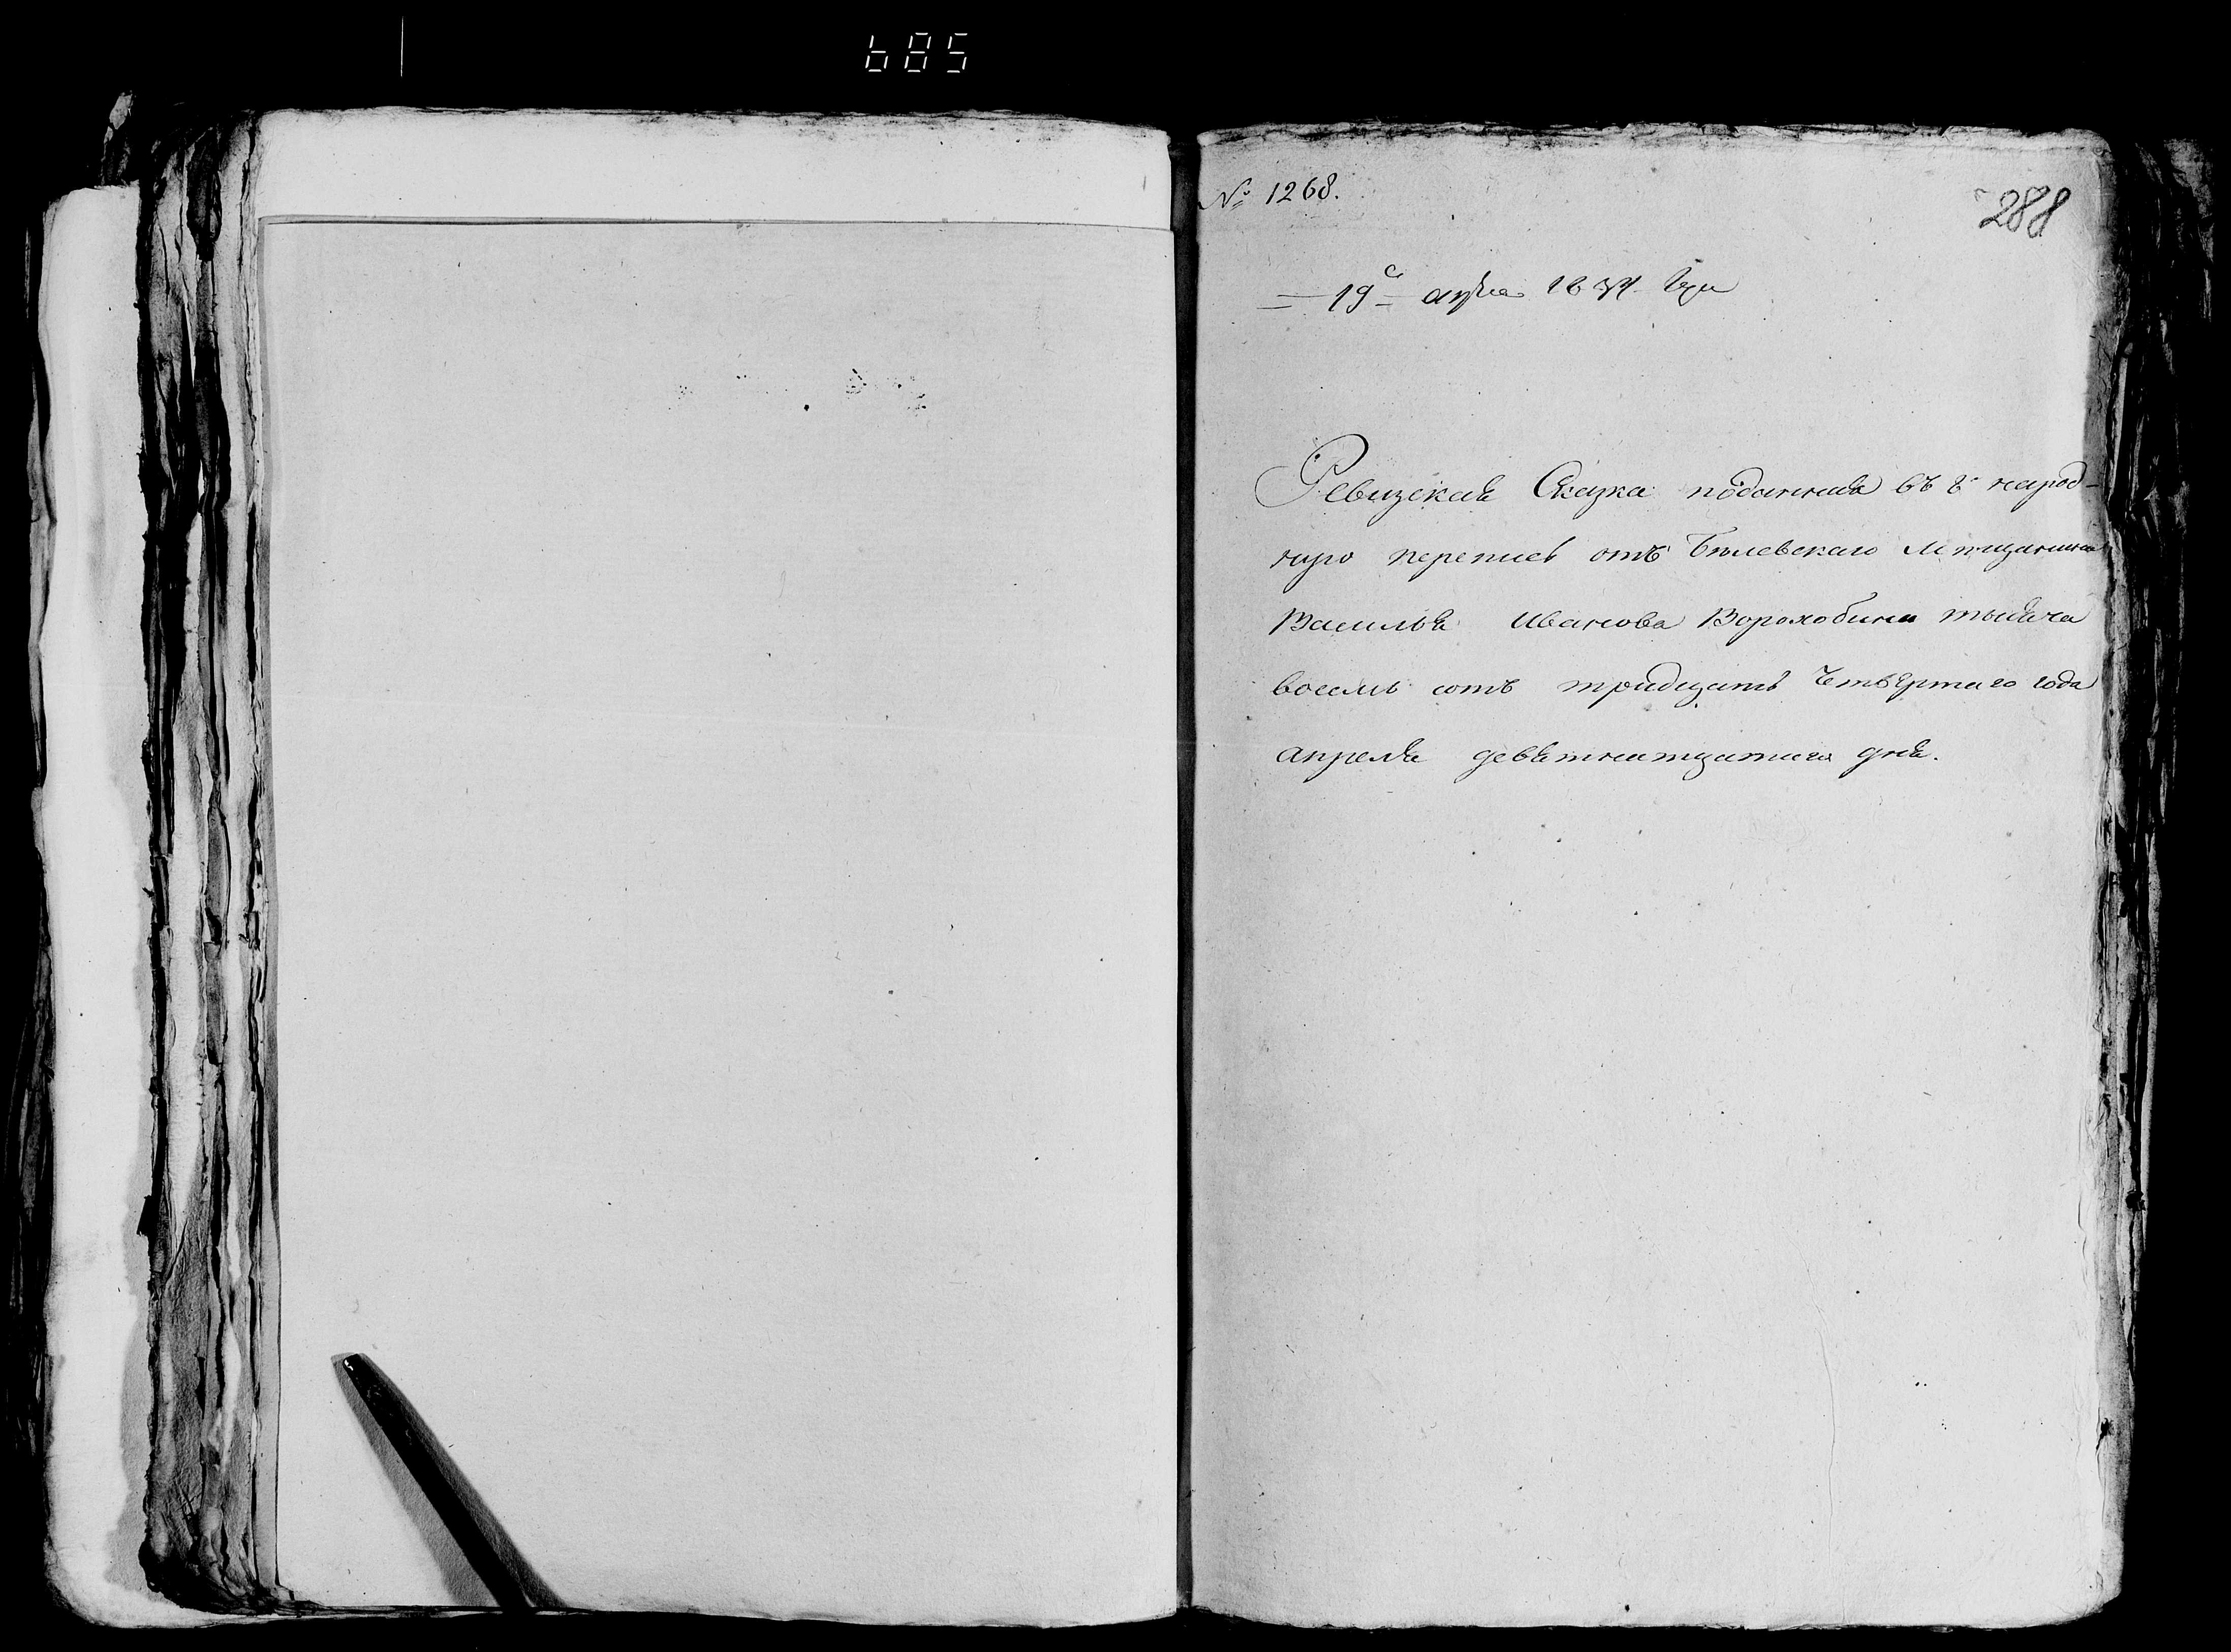 685
№ 1268.
288
19 апреля 1834 года
Ревизская Сказка поданная въ 8ю народ-
ную перепись отъ Белевскаго Мѣщанина
Василья Иванова Ворохобина тысяча
восемь сотъ тридцать Четвертаго года
апреля девятнатцатаго дня.